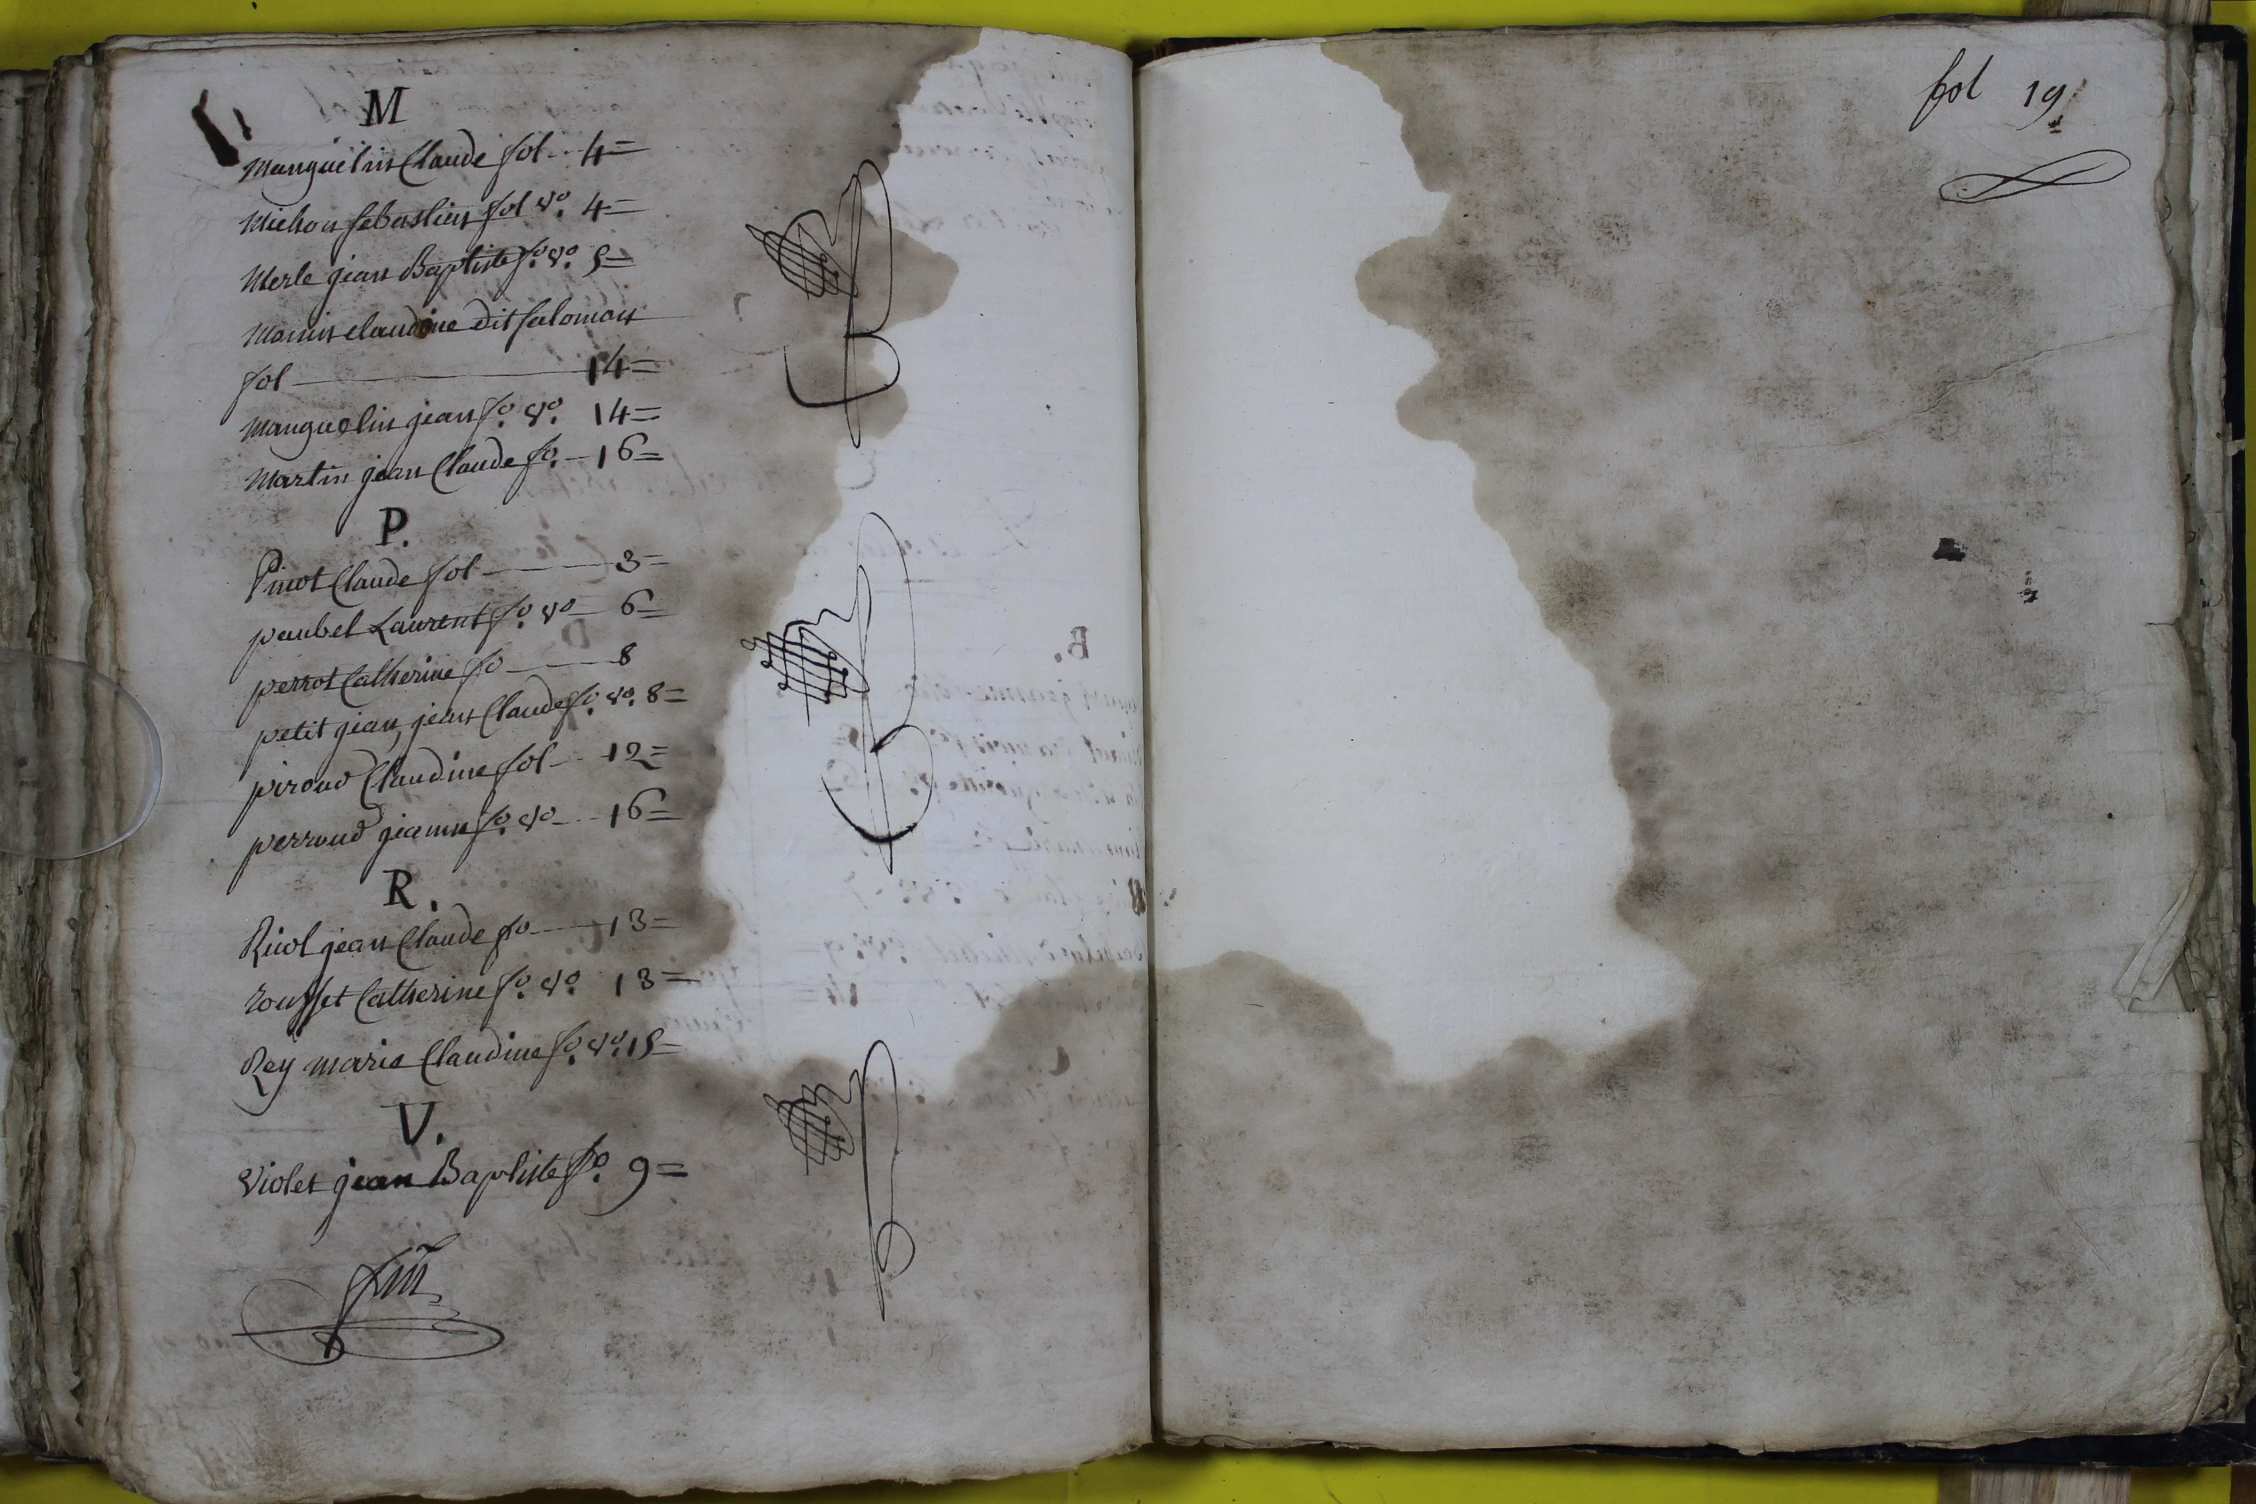 M
Manguelin Claude fol. 4=
Michon sebastien fol vo. 4=
Merle jean Baptiste fo. vo. 5=
Monin claudine dit salomon
fol 14=
Manguelin jean fo. vo. 14=
Martin jean Claude fo. 16=
P.
Pinot Claude fol 3=
paubel Laurent fo. vo 6=
perrot Catherine fo 8
petit jean, jean Claude fo. vo. 8=
piroud Claudine fol 12=
perroud jeanne fo. vo 16=
R.
Ricol jean Claude fo 13=
rousset Catherine fo. vo. 13=
Rey marie Claudine fo. vo. 15=
V.
Violet jean Baptiste fo. 9=
fin
fol 19